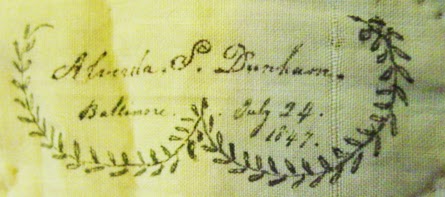 Alverda. S. Dunham.
Baltimore. July 24.
1847.